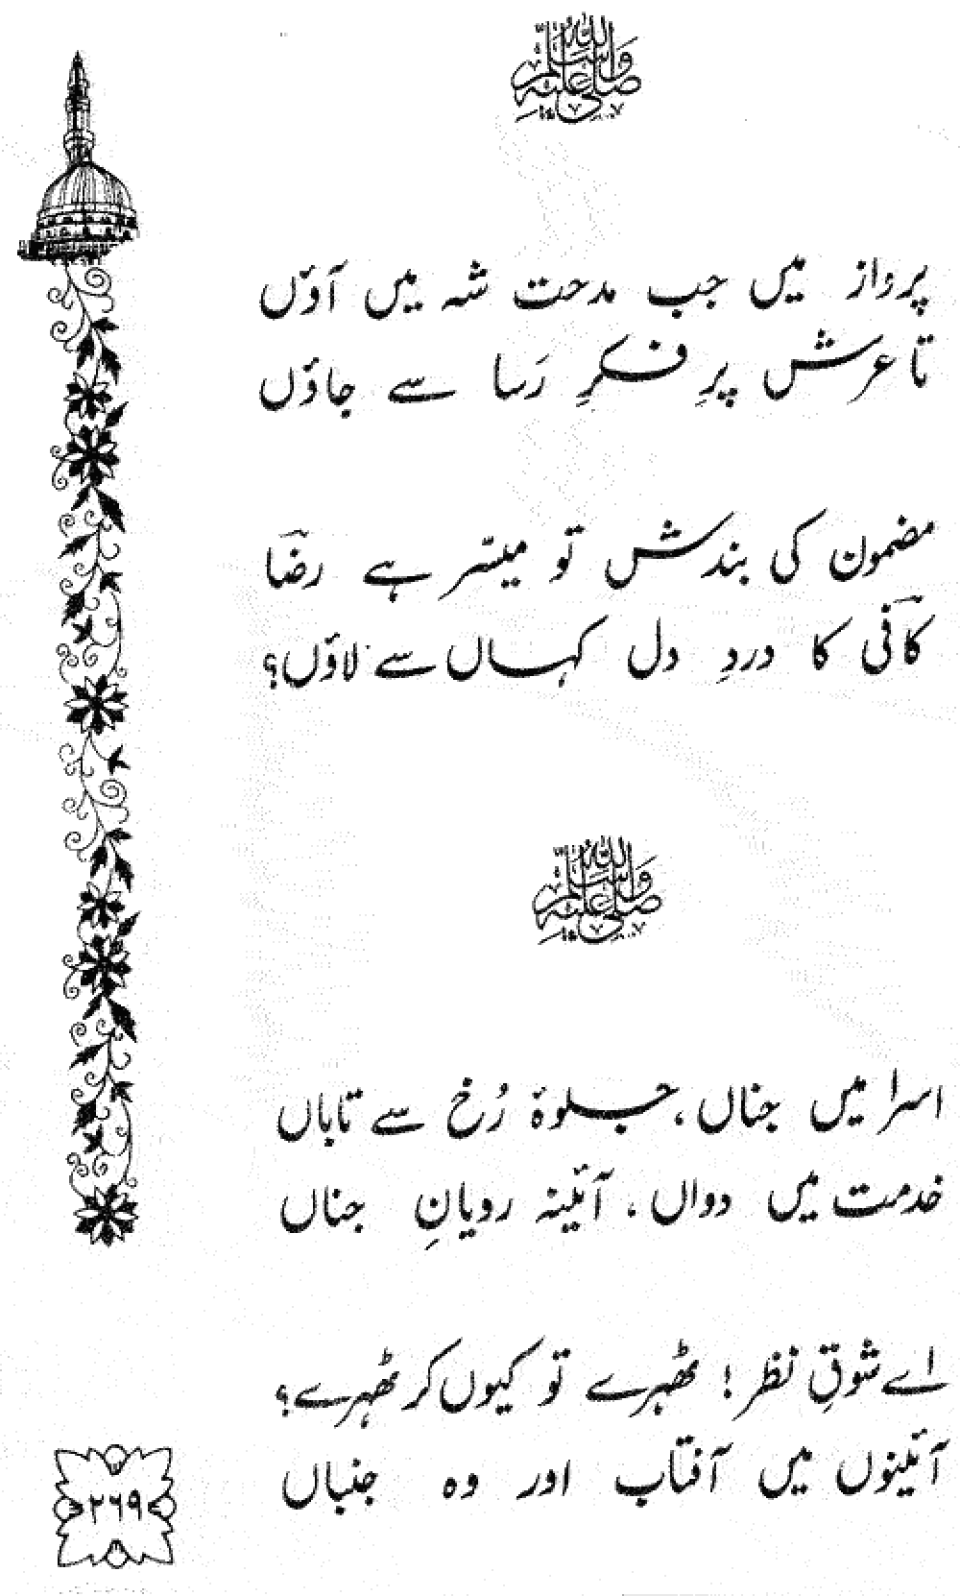 صلی اللہ علیہ وسلم
پرواز میں جب مدحت شہ میں آؤں
تا عرش پرِ فکرِ رَسا سے جاؤں
مضمون کی بندش تو میسّر ہے رضؔا
کاؔفی کا دردِ دل کہاں سے لاؤں؟
صلی اللہ علیہ وسلم
اسرا میں جناں، جلوۂ رُخ سے تاباں
خدمت میں دواں، آئینہ رویانِ جناں
اے شوقِ نظر! ٹھہرے تو کیوں کر ٹھہرے؟
آئینوں میں آفتاب اور وہ جنباں
۲۶۹